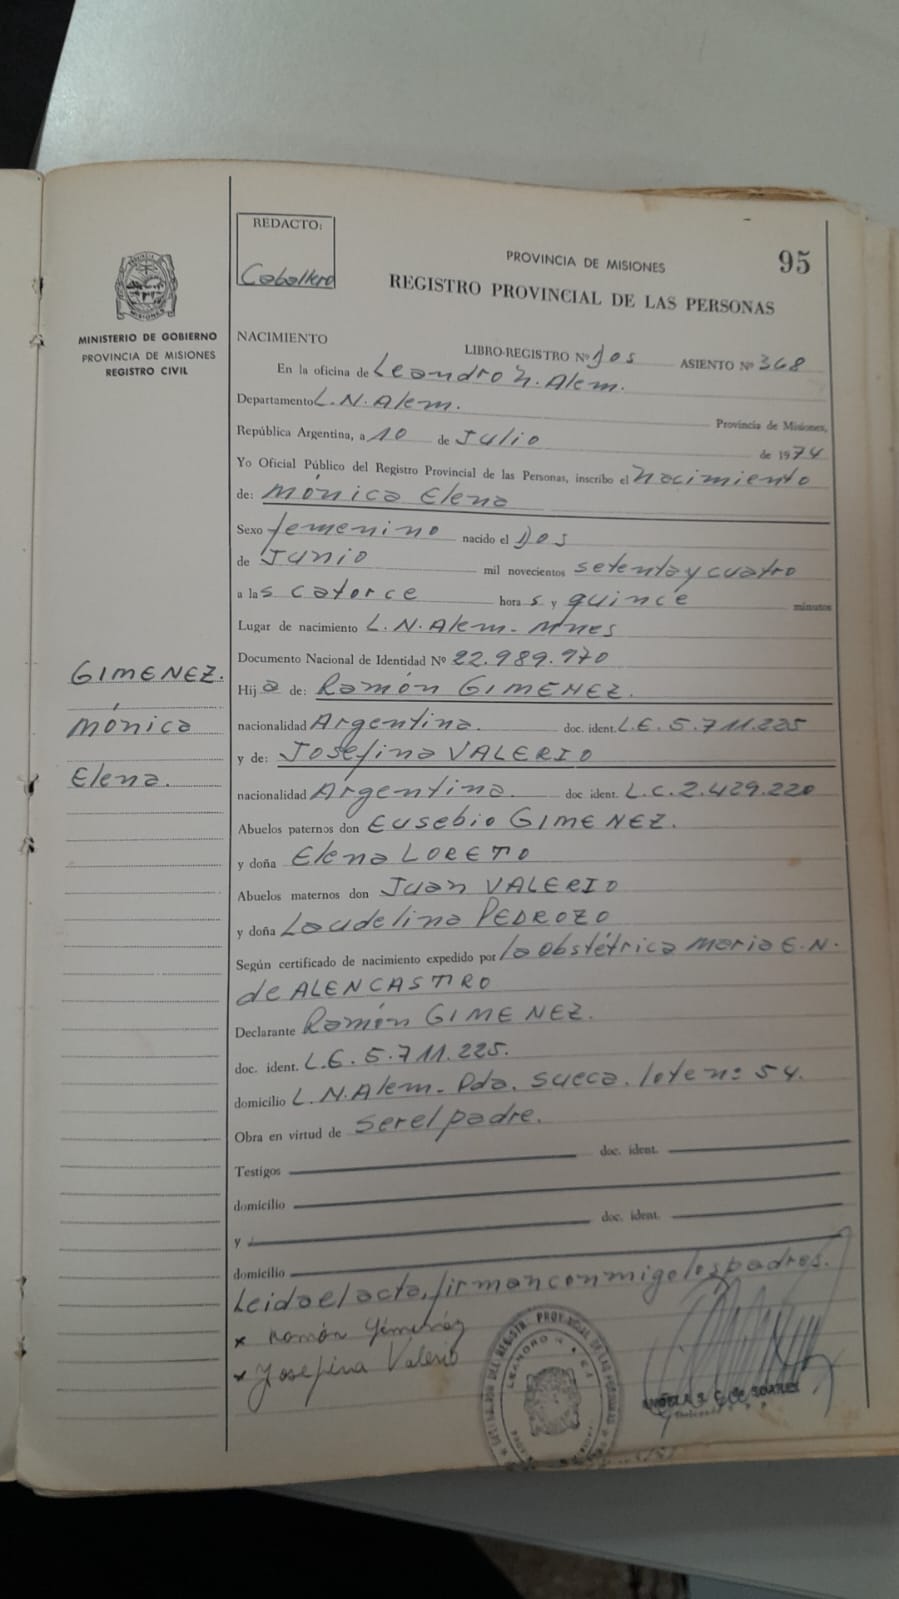 REDACTO:
Caballero
PROVINCIA DE MISIONES
95
REGISTRO PROVINCIAL DE LAS PERSONAS
MINISTERIO DE GOBIERNO
PROVINCIA DE MISIONES
REGISTRO CIVIL
NACIMIENTO
LIBRO-REGISTRO Nº Dos ASIENTO Nº 368
En la oficina de Leandro N. Alem.
Departamento L.N. Alem. Provincia de Misiones,
República Argentina, a 10 de Julio de 1974
Yo Oficial Público del Registro Provincial de las Personas, inscribo el Nacimiento
de: Mónica Elena
Sexo femenino nacido el Dos
de Junio mil novecientos setenta y cuatro
a las catorce horas y quince minutos
Lugar de nacimiento L.N. Alem - Mnes
Documento Nacional de Identidad Nº 22.989.970
GIMENEZ.
Mónica
Elena.
Hija de: Ramón GIMENEZ.
nacionalidad Argentina. doc. ident. L.E. 5.711.225
y de: Josefina VALERIO
nacionalidad Argentina. doc. ident. L.C. 2.429.220
Abuelos paternos don Eusebio GIMENEZ.
y doña Elena LORETO
Abuelos maternos don Juan VALERIO
y doña Laudelina PEDROZO
Según certificado de nacimiento expedido por la obstétrica Maria E.N.
de ALENCASTRO
Declarante Ramón GIMENEZ.
doc. ident. L.E. 5.711.225.
domicilio L.N. Alem - Pda. Sueca. lote nº 54.
Obra en virtud de ser el padre.
Testigos doc. ident.
domicilio
y doc. ident.
domicilio
Leida el acta, firman conmigo los padres.
x Ramón Giménez
x Josefina Valerio